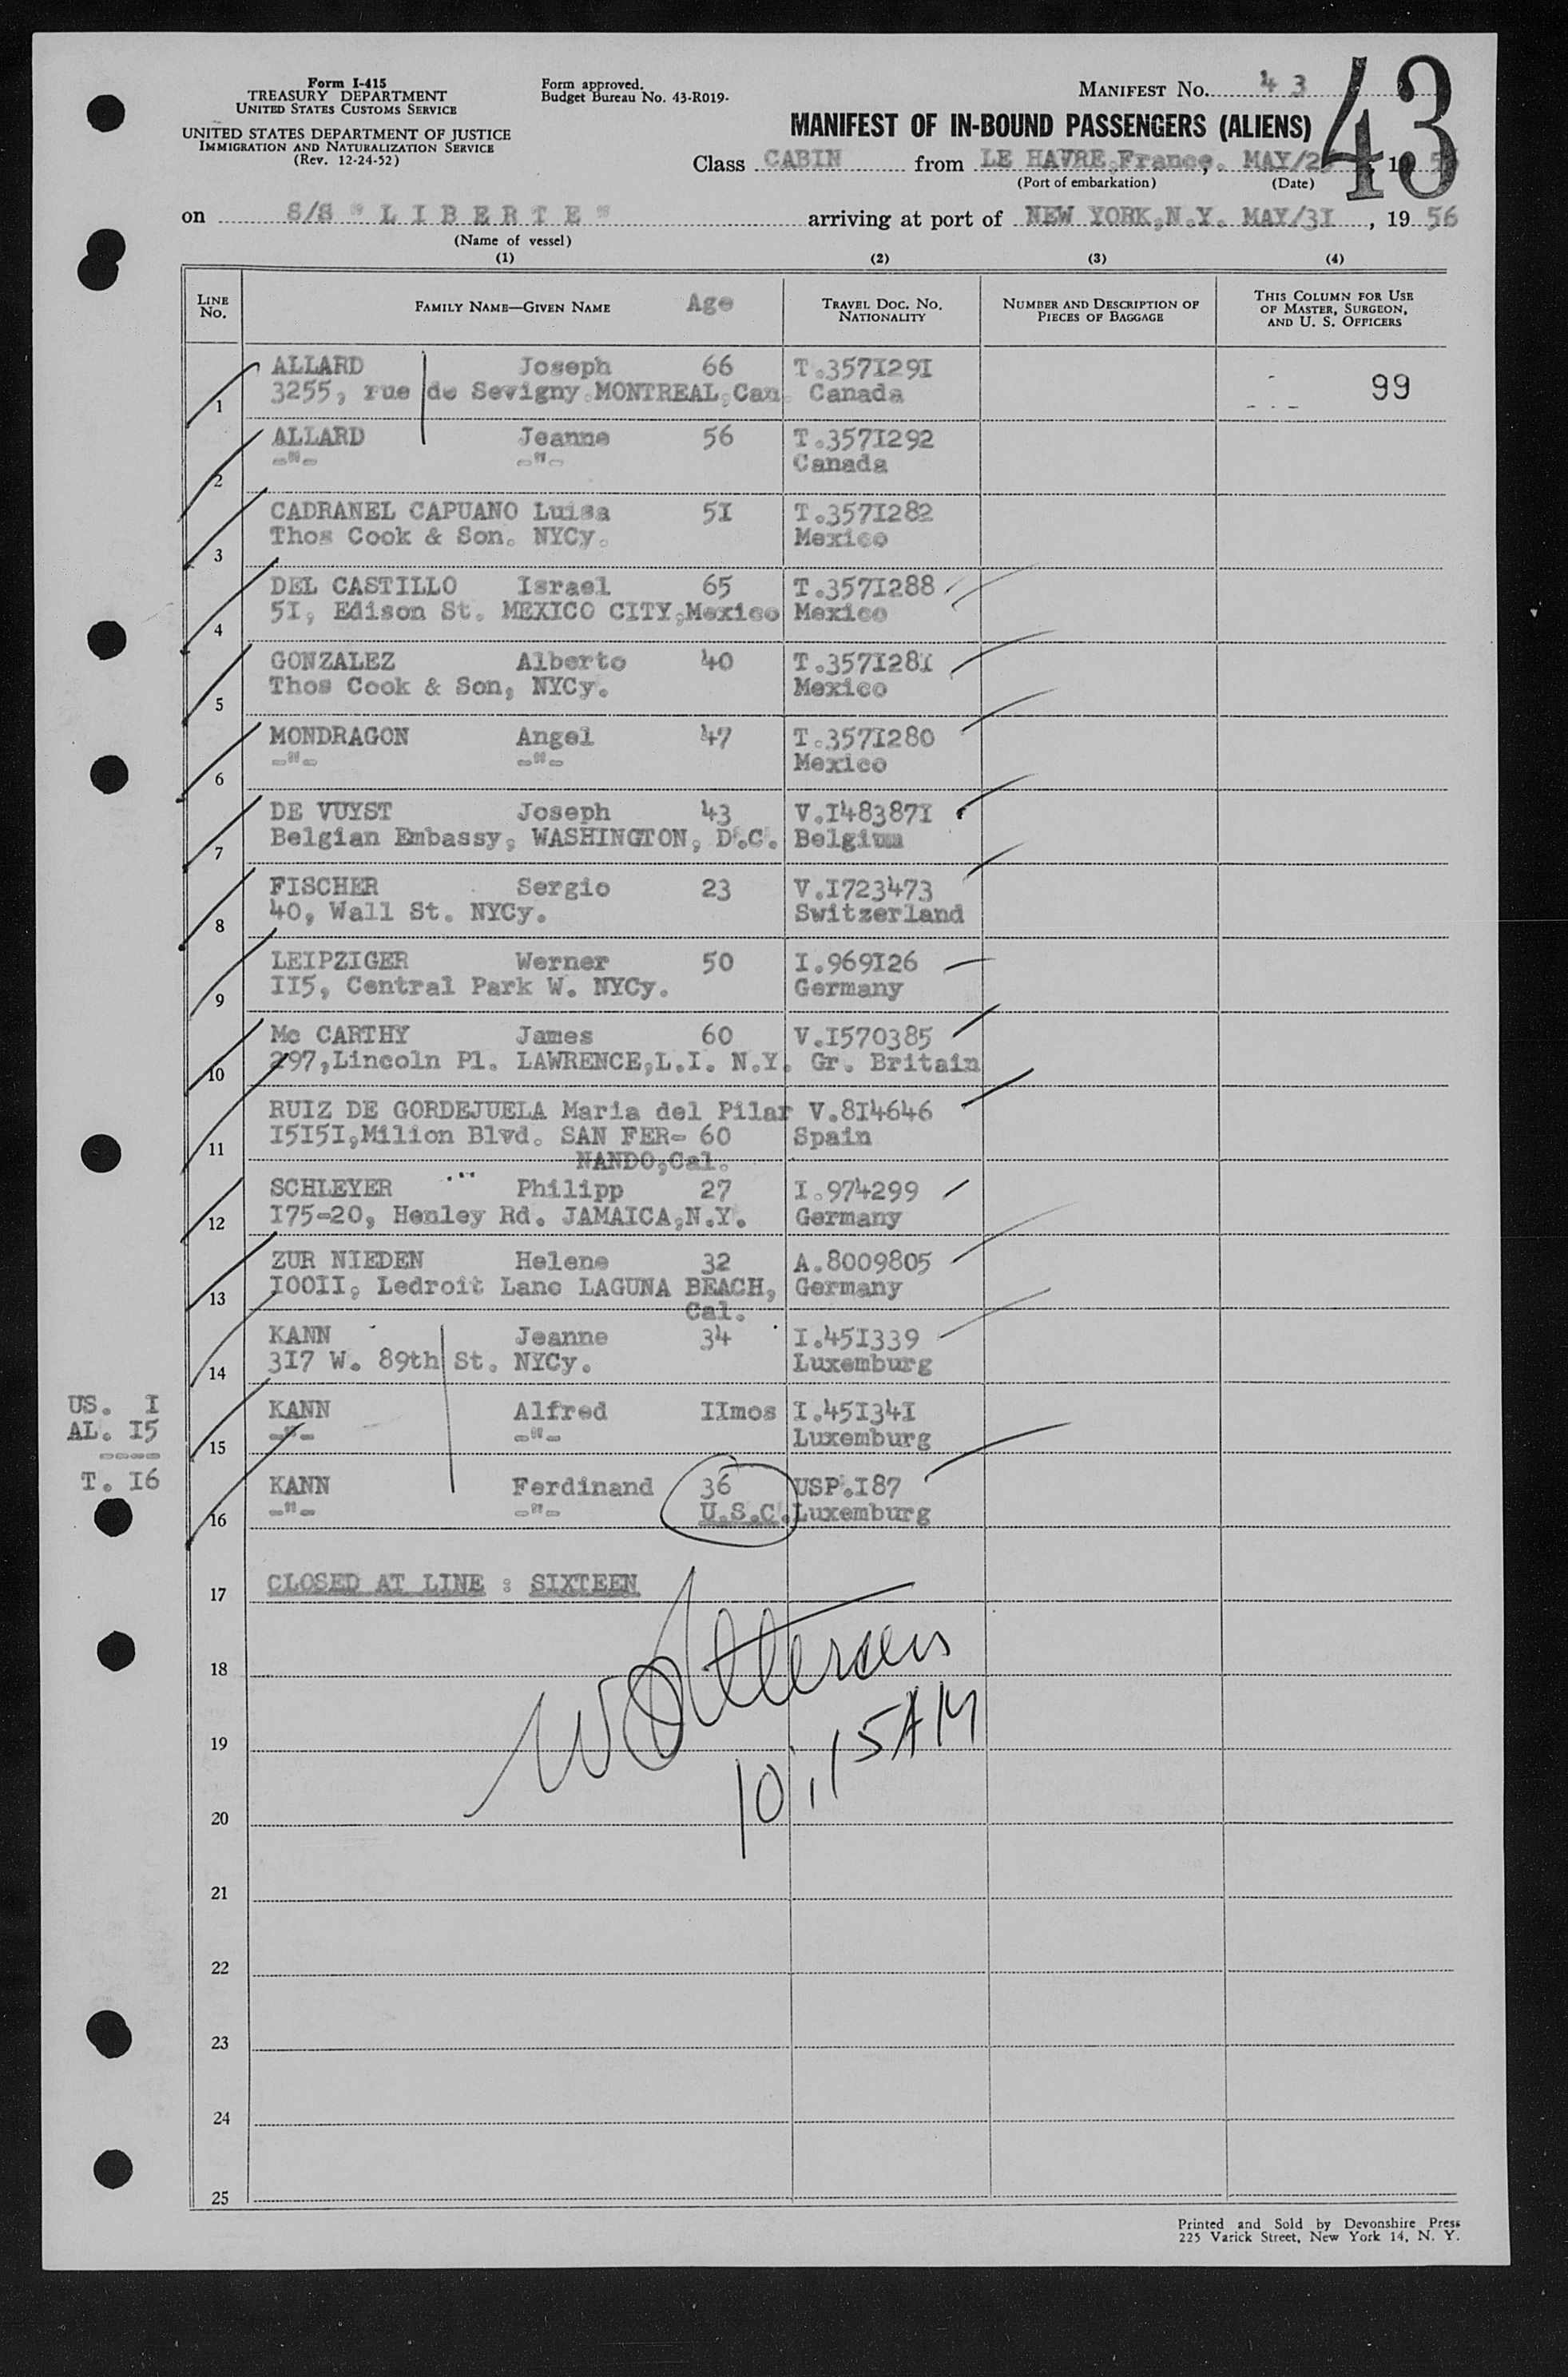 Form I-415
TREASURY DEPARTMENT
UNITED STATES CUSTOMS SERVICE
UNITED STATES DEPARTMENT OF JUSTICE
IMMIGRATION AND NATURALIZATION SERVICE
(Rev. 12-24-52)
Form approved.
Budget Bureau No. 43-R019-
MANIFEST NO. 43
43
MANIFEST OF IN-BOUND PASSENGERS (ALIENS)
Class CABIN from LE HAVRE,France, MAY/2 , 19
(Port of embarkation) (Date)
on S/S "LIBERTE" arriving at port of NEW YORK,N.Y. MAY/3I, 1956
(Name of vessel)
(1) (2) (3) (4)
LINE No. FAMILY NAME—GIVEN NAME Age TRAVEL DOC. NO. NATIONALITY NUMBER AND DESCRIPTION OF PIECES OF BAGGAGE THIS COLUMN FOR USE OF MASTER, SURGEON, AND U. S. OFFICERS
ALLARD Joseph 66 T.357I29I
1 3255, rue de Sevigny.MONTREAL,Can. Canada 99
ALLARD Jeanne 56 T.357I292
2 -"- -"- Canada
CADRANEL CAPUANO Luisa 5I T.357I282
3 Thos Cook & Son. NYCy. Mexico
DEL CASTILLO Israel 65 T.357I288
4 5I, Edison St. MEXICO CITY,Mexico Mexico
GONZALEZ Alberto 40 T.357I28I
5 Thos Cook & Son, NYCy. Mexico
MONDRAGON Angel 47 T.357I280
6 -"- -"- Mexico
DE VUYST Joseph 43 V.I48387I
7 Belgian Embassy, WASHINGTON, D.C. Belgium
FISCHER Sergio 23 V.I723473
8 40, Wall St. NYCy. Switzerland
LEIPZIGER Werner 50 I.969I26
9 II5, Central Park W. NYCy. Germany
Mc CARTHY James 60 V.I570385
10 297,Lincoln Pl. LAWRENCE,L.I. N.Y. Gr. Britain
RUIZ DE GORDEJUELA Maria del Pilar V.8I4646
11 I5I5I,Milion Blvd. SAN FER- 60 Spain
NANDO,Cal.
SCHLEYER Philipp 27 I.974299
12 I75-20, Henley Rd. JAMAICA,N.Y. Germany
ZUR NIEDEN Helene 32 A.8009805
13 I00II, Ledroit Lane LAGUNA BEACH, Germany
Cal.
KANN Jeanne 34 I.45I339
14 3I7 W. 89th St. NYCy. Luxemburg
US. I
KANN Alfred IImos I.45I34I
AL. I5
15 -"- -"- Luxemburg
----
T. I6
KANN Ferdinand 36 USP.I87
16 -"- -"- U.S.C. Luxemburg
17 CLOSED AT LINE : SIXTEEN
18
19
10,15AM
20
21
22
23
24
25
Printed and Sold by Devonshire Press
225 Varick Street, New York 14, N. Y.